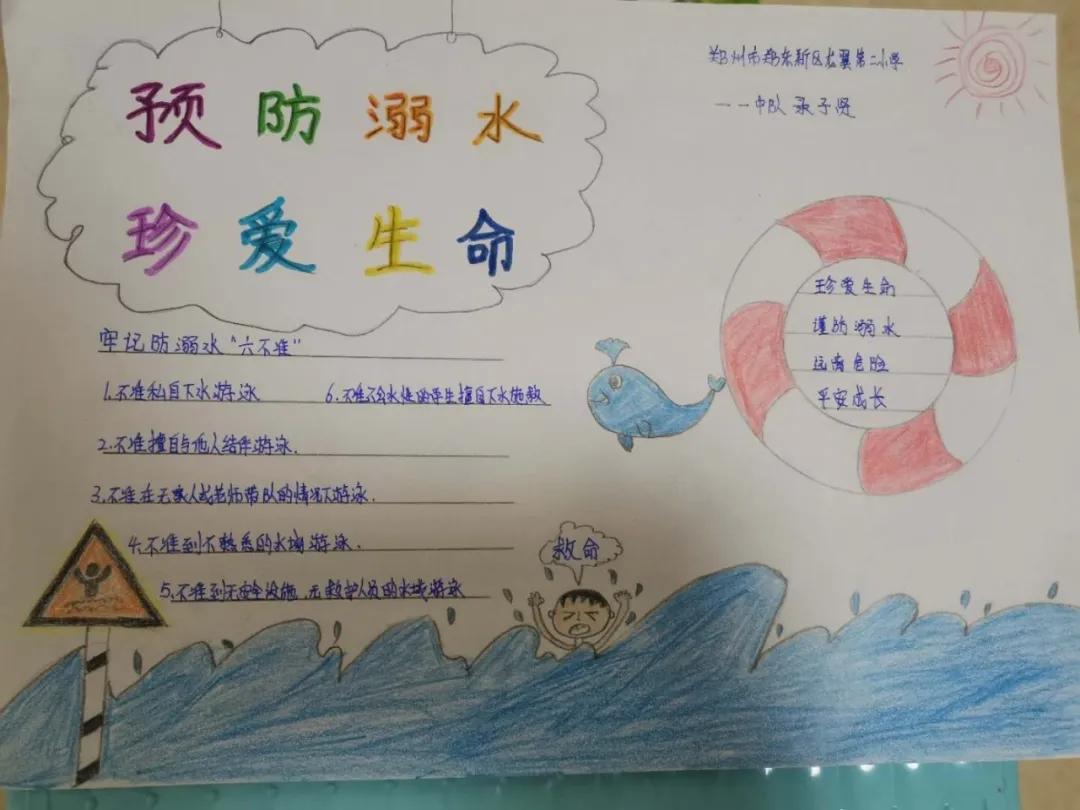 预防溺水
珍爱生命
郑州市郑东新区龙翼第二小学
一一中队 录子贤
牢记防溺水“六不准”
1.不准私自下水游泳
6.不准不会水性的学生擅自下水施救
2.不准擅自与他人结伴游泳.
3.不准在无家人或老师带队的情况下游泳.
4.不准到不熟悉的水域游泳.
5.不准到无安全设施、无救护人员的水域游泳
珍爱生命
谨防溺水
远离危险
平安成长
救命